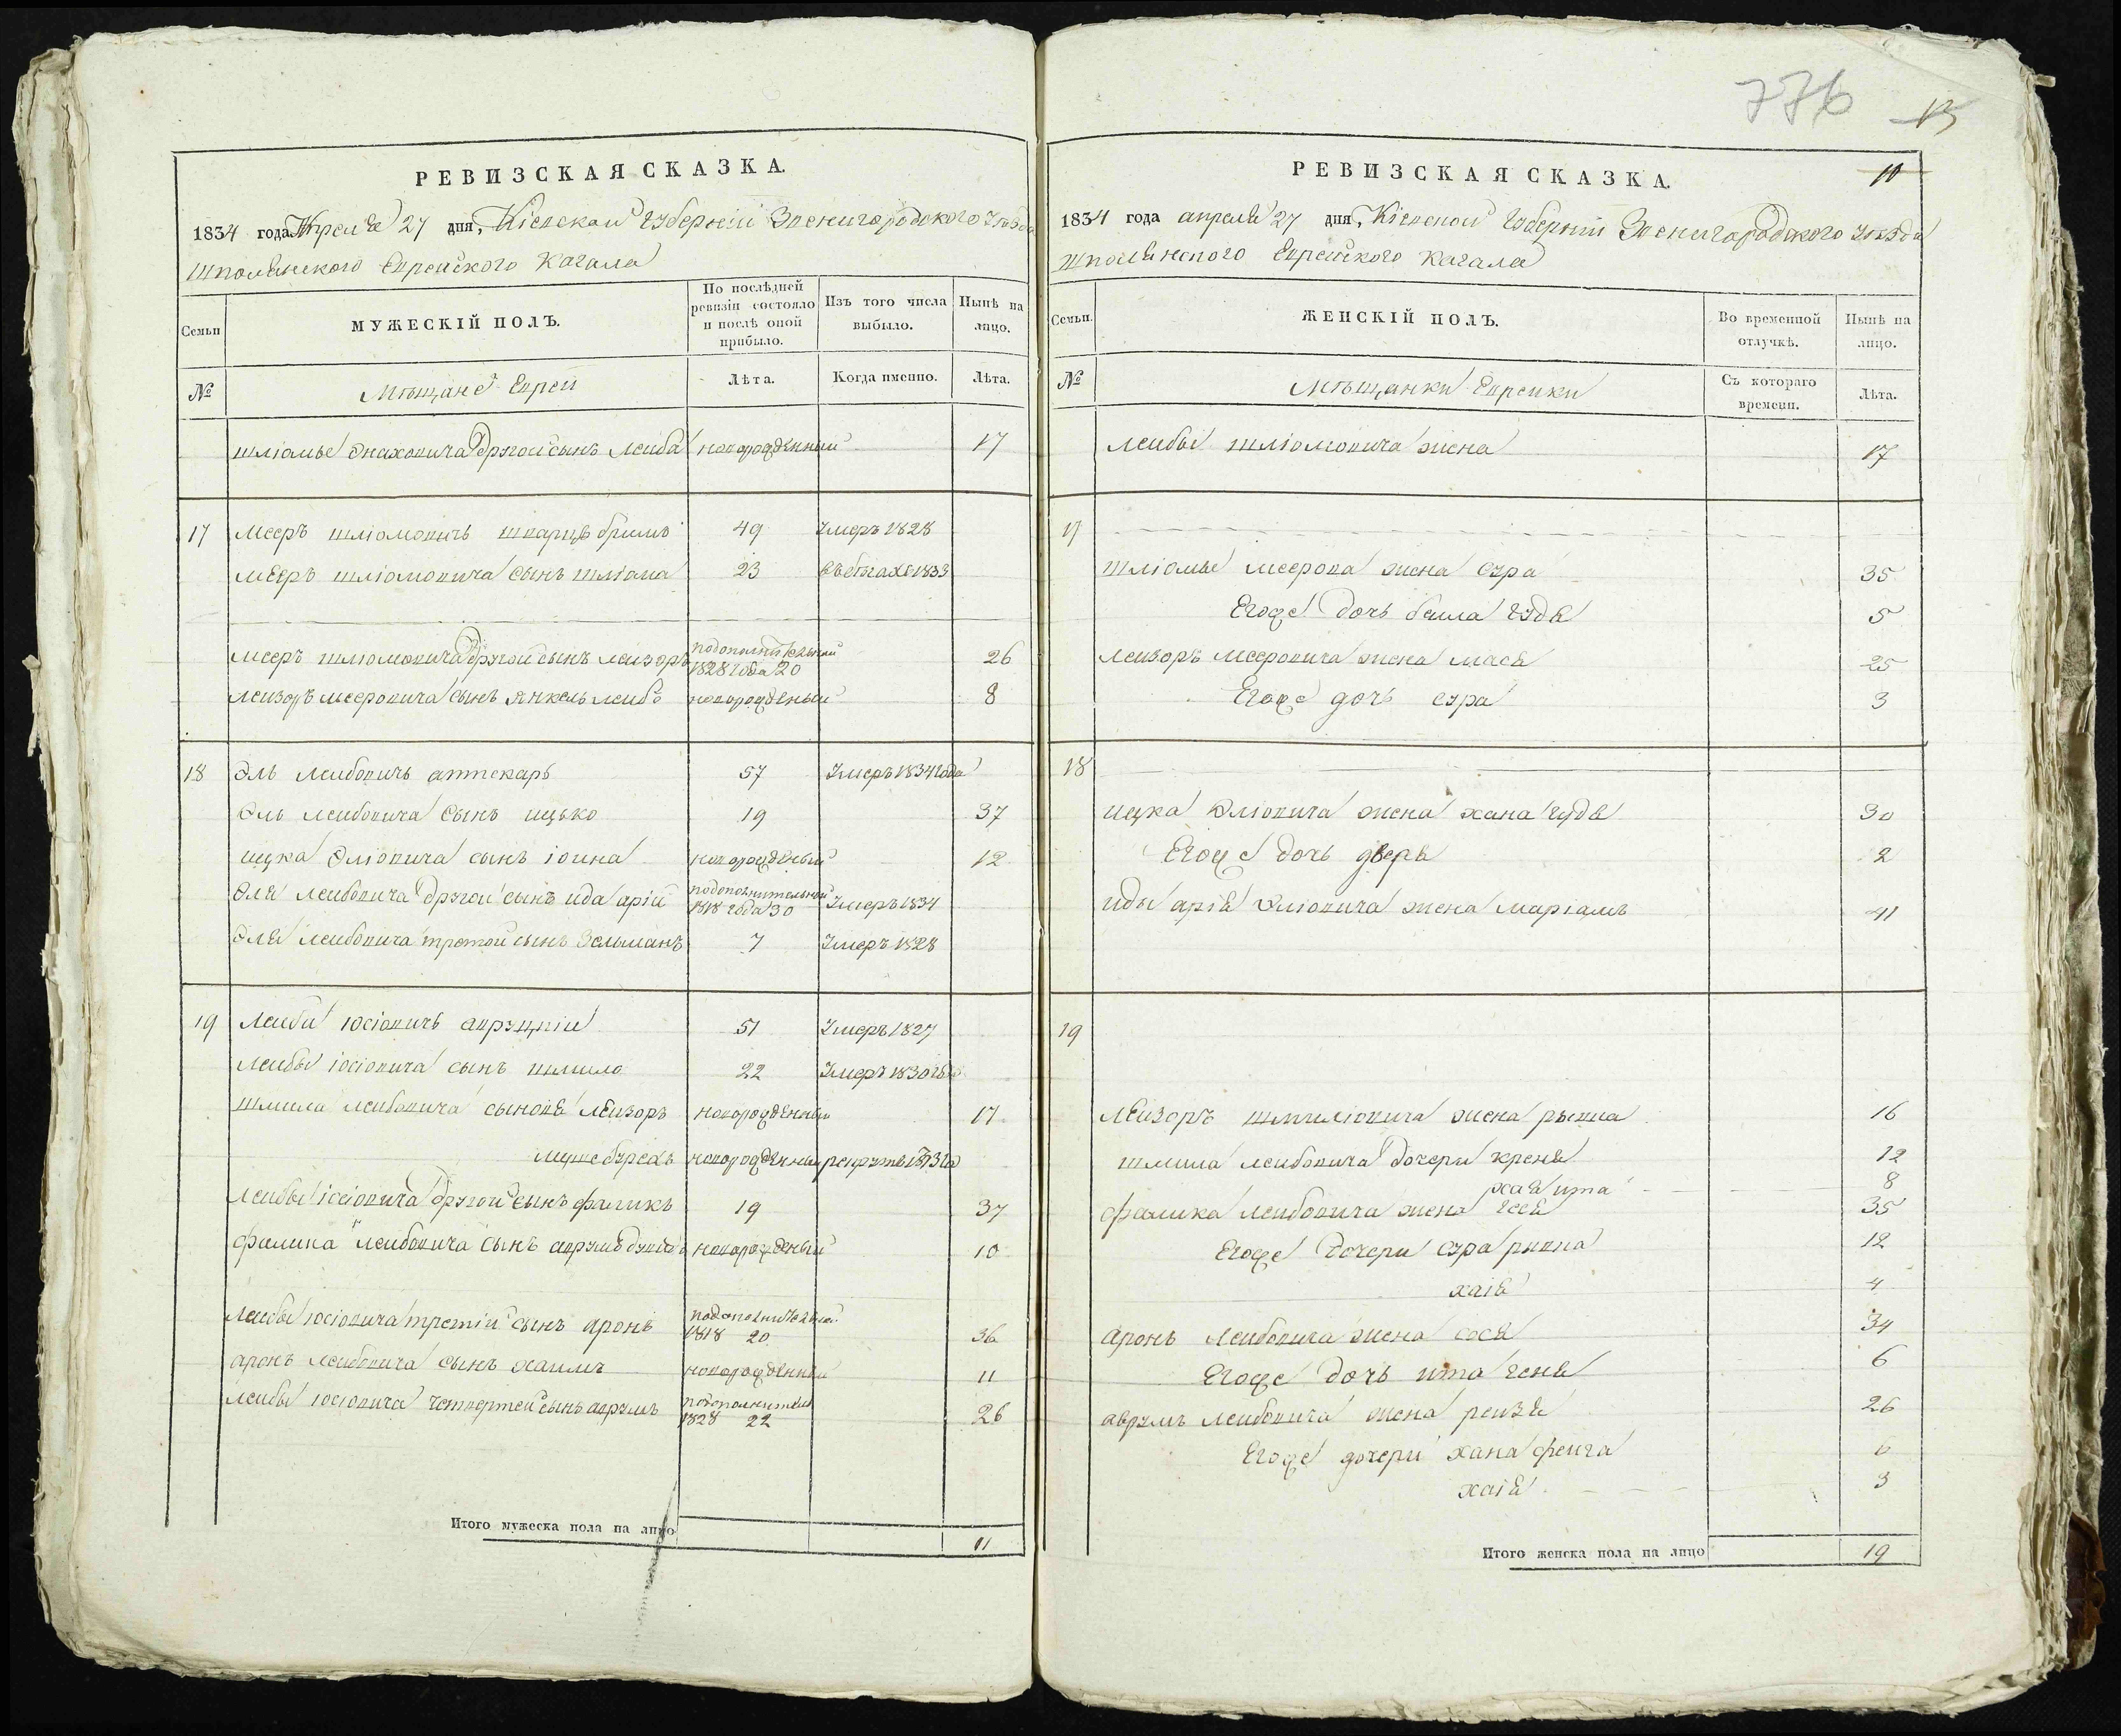 РЕВИЗСКАЯ СКАЗКА.
1834 года Апреля 27 дня, Кіевской Губерніи Звенигородского Уѣзда
Шполянского Еврейского Кагала
Семьи
МУЖЕСКІЙ ПОЛЪ.
По послѣдней ревизіи состояло и послѣ оной прибыло.
Изъ того числа выбыло.
Нынѣ на лицо.
№
Мѣщане Евреи
Лѣта.
Когда именно.
Лѣта.
шліомы Энаховича другой сынъ Лейба новорожденный 17
17 Мееръ шліомовичъ 49 Умеръ 1828
Мееръ шліомовича сынъ шліома 23 въ бѣгахъ 1833
Мееръ шліомовича другой сынъ лейзоръ подополнительной 1828 года 20 26
лейзоръ меровича сынъ янкель лейбъ новорожденый 8
18 Эль лейбовичъ аптекаръ 57 Умеръ 1834 года
Эль лейбовича сынъ ицько 19 37
ицка Эліовича сынъ іоина новорожденый 12
Эля лейбовича другой сынъ ида арій подополнительной 1818 года 30 Умеръ 1834
Эля лейбовича третой сынъ Зельманъ 7 Умеръ 1828
19 Лейби іосіовичъ 51 Умеръ 1827
Лейбы іосіовича сынъ шмило 22 Умеръ 1830 года
шмила лейбовича сыновя лейзоръ новорожденный 17
новорожденный
лейбы іосіовича другой сынъ фаликъ 19 37
фалика лейбовича сынъ аврумъ новорожденый 10
лейбы іосіовича третій сынъ аронъ подополнительной 1818 20 36
аронъ лейбовича сынъ хаимъ новорожденный 11
лейбы іосіовича четвертой сынъ аврумъ 1828 22 26
Итого мужеска пола на лицо 11
776
10
РЕВИЗСКАЯ СКАЗКА.
1834 года апреля 27 дня, Кіевской Губерніи Звенигородского Уѣзда
Шполянского Еврейского Кагала
Семьи.
ЖЕНСКІЙ ПОЛЪ.
Во временной отлучкѣ.
Нынѣ на лицо.
№
Мѣщанки Еврейки
Съ котораго времени.
Лѣта.
лейбы шліомовича жена 17
17
шліомы меерова жена сура 35
Егоже дочь бейла гудя 5
лейзоръ мееровича жена мася 25
Егоже дочь сура 3
18
ицка Эліовича жена хана гудя 30
Егоже дочь дверя 2
иды арія Эліовича жена маріамъ 41
19
лейзоръ шмиліовича жена рывка 16
шмила лейбовича дочери креня 12
хая ита 8
фалика лейбовича жена гося 35
Егоже дочери сура ривка 12
хаія 4
аронъ лейбовича жена сося 34
Егоже дочь ита геня 6
аврумъ лейбовича жена рейзя 26
Егоже дочери хана фейга 6
хаія 3
Итого женска пола на лицо 19